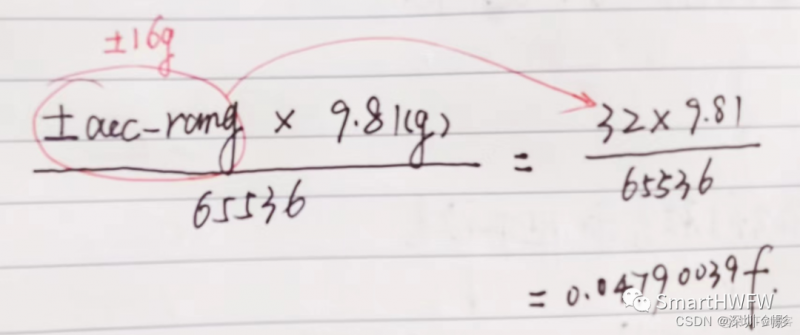 ±16g
±acc-rang × 9.81(g) / 65536 = 32×9.81 / 65536
= 0.04790039f.
SmartHWFW
CSDN @深圳剑影